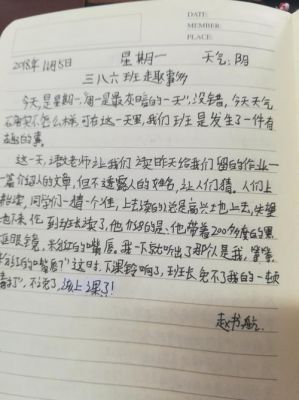 DATE:
MEMBER:
PLACE:
2018年11月5日 星期一 天气:阴
三八六班趣事多
今天,是星期一,"周一是最灰暗的一天",没错,今天天气
在确实不怎么样,可在这一天里,我们班是发生了一件有
趣的事。
这一天,语文老师让我们读昨天给我们留的作业一
一篇介绍人的文章,但不透露人的姓名,让人们猜。人们上
台读,同学们一猜一个准,上去读的总是高兴上也上去,失望
地下来,轮到班长读了,他介绍的是:他带着200多度的黑
框眼镜,粉红的嘴唇。我一下就听出了那个人是我,
粉红的嘴唇?"这时,下课铃响了,班长免不了我的一顿
"毒打",不说了,该上课了!
赵书航